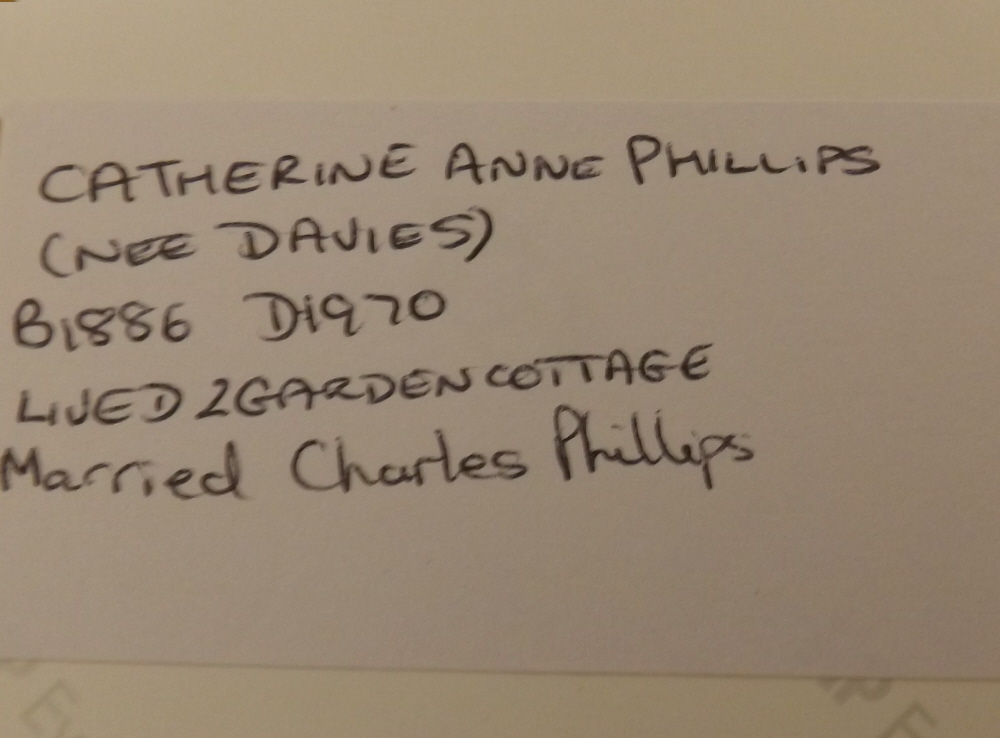 CATHERINE ANNE PHILLIPS
(NEE DAVIES)
B1886 D1970
LIVED 2 GARDEN COTTAGE
Married Charles Phillips